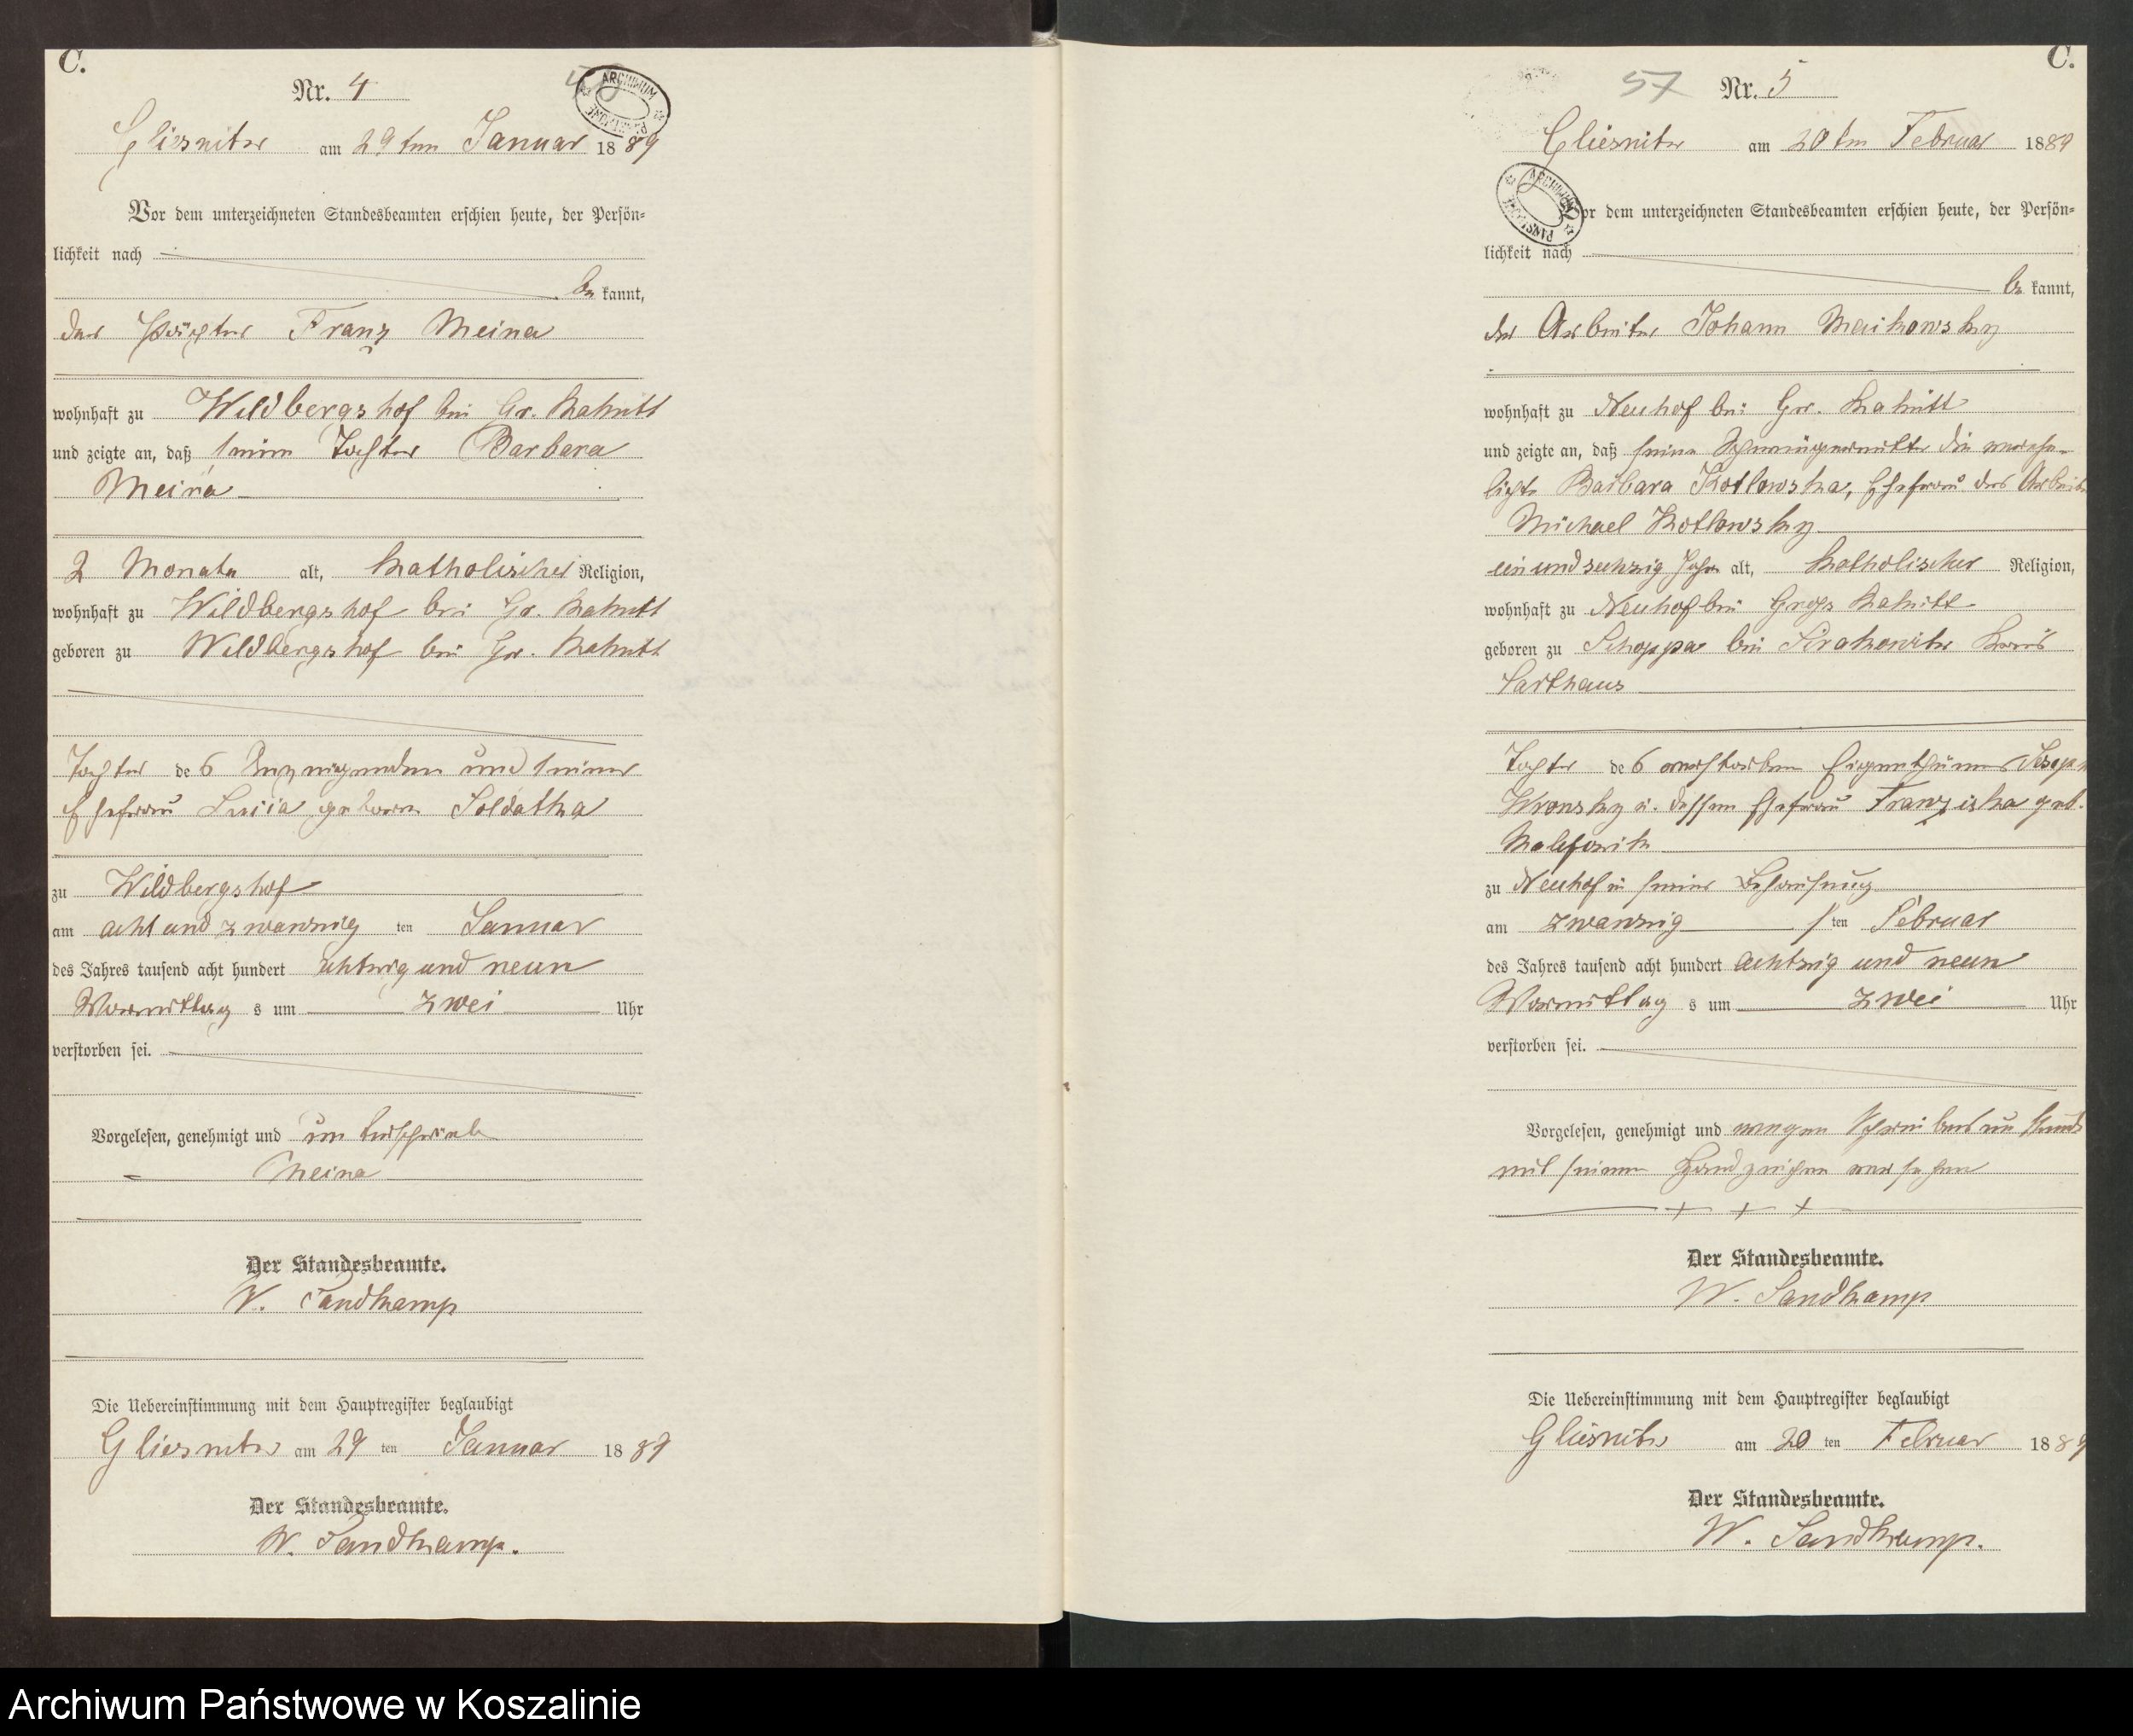 C.
Nr. 4
ARCHIWUM PAŃSTWOWE
Gliesnitz am 29ten Januar 1889
Vor dem unterzeichneten Standesbeamten erschien heute, der Persön-
lichkeit nach
be kannt,
der Pächter Franz Meina
wohnhaft zu Wildbergshof bei Gr. Rakitt
und zeigte an, daß seine Tochter Barbara
Meina
2 Monate alt, katholischer Religion,
wohnhaft zu Wildbergshof bei Gr. Rakitt
geboren zu Wildbergshof bei Gr. Rakitt
Tochter des Anzeigenden und seiner
Ehefrau Lucia geborne Soldatka
zu Wildbergshof
am acht und zwanzig ten Januar
des Jahres tausend acht hundert achtzig und neun
Vormittag s um zwei Uhr
verstorben sei.
Vorgelesen, genehmigt und unterschrieben
Meina
Der Standesbeamte.
W. Sandkamp
Die Uebereinstimmung mit dem Hauptregister beglaubigt
Gliesnitz am 29 ten Januar 1889
Der Standesbeamte.
W. Sandkamp.
C.
57 Nr. 5
Gliesnitz am 20ten Februar 1889
ARCHIWUM PAŃSTWOWE
Vor dem unterzeichneten Standesbeamten erschien heute, der Persön-
lichkeit nach
be kannt,
der Arbeiter Johann Maikowsky
wohnhaft zu Neuhof bei Gr. Rakitt
und zeigte an, daß seine Schwiegermutter die verehe-
lichte Barbara Kotlowska, Ehefrau des Arbeiters
Michael Kotlowsky
einundsechzig Jahre alt, katholischer Religion,
wohnhaft zu Neuhof bei Groß Rakitt
geboren zu Schoppa bei Sirakowitz Kreis
Carthaus
Tochter des verstorbenen Eigenthümers Joseph
Wronsky u. dessen Ehefrau Franziska geb.
zu Neuhof in seiner Behausung
am zwanzig sten Februar
des Jahres tausend acht hundert achtzig und neun
Vormittag s um zwei Uhr
verstorben sei.
Vorgelesen, genehmigt und wegen Schreibensunkunde
mit seinem Handzeichen versehen
+ + +
Der Standesbeamte.
W. Sandkamp
Die Uebereinstimmung mit dem Hauptregister beglaubigt
Gliesnitz am 20 ten Februar 1889
Der Standesbeamte.
W. Sandkamp.
Archiwum Państwowe w Koszalinie